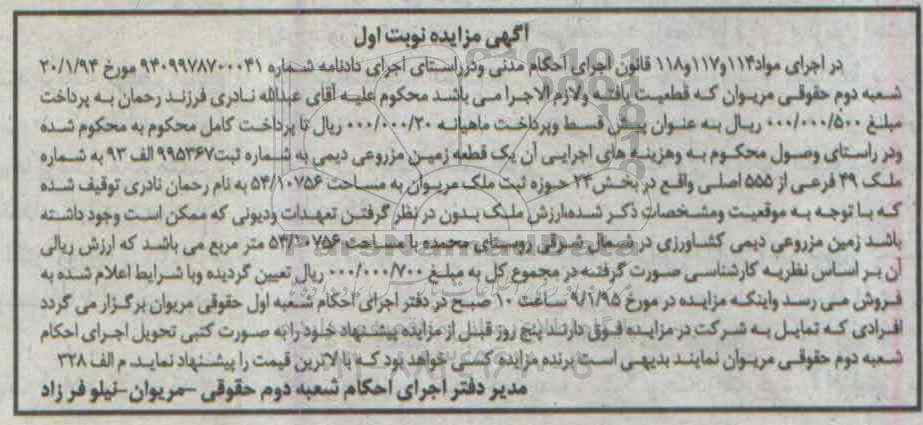 آگهی مزایده نوبت اول
در اجرای مواد۱۱۴و۱۱۷و۱۱۸ قانون اجرای احکام مدنی ودرراستای اجرای دادنامه شماره ۹۴۰۹۹۷۸۷۰۰۰۴۱ مورخ ۲۰/۱/۹۴
شعبه دوم حقوقی مریوان که قطعیت یافته ولازم الاجرا می باشد محکوم علیه آقای عبدالله نادری فرزند رحمان به پرداخت
مبلغ ۰۰۰/۰۰۰/۵۰۰ ریال به عنوان پیش قسط وپرداخت ماهیانه ۰۰۰/۰۰۰/۲۰ ریال تا پرداخت کامل محکوم به محکوم شده
ودر راستای وصول محکوم به وهزینه های اجرایی آن یک قطعه زمین مزروعی دیمی به شماره ثبت۹۹۵۳۶۷الف ۹۳ به شماره
ملک ۳۹ فرعی از ۵۵۵ اصلی واقع در بخش۲۴ حوزه ثبت ملک مریوان به مساحت ۵۴/۱۰۷۵۶ به نام رحمان نادری توقیف شده
که با توجه به موقعیت ومشخصات ذکر شده،ارزش ملک بدون در نظر گرفتن تعهدات ودیونی که ممکن است وجود داشته
باشد زمین مزروعی دیمی کشاورزی در شمال شرقی روستای محمده با مساحت ۵۴/۱۰۷۵۶ متر مربع می باشد که ارزش ریالی
آن بر اساس نظریه کارشناسی صورت گرفته در مجموع کل به مبلغ ۰۰۰/۰۰۰/۷۰۰ ریال تعیین گردیده وبا شرایط اعلام شده به
فروش می رسد واینکه مزایده در مورخ ۹/۱/۹۵ ساعت ۱۰ صبح در دفتر اجرای احکام شعبه اول حقوقی مریوان برگزار می گردد
افرادی که تمایل به شرکت در مزایده فوق دارند پنج روز قبل از مزایده پیشنهاد خود را به صورت کتبی تحویل اجرای احکام
شعبه دوم حقوقی مریوان نمایند بدیهی است برنده مزایده کسی خواهد بود که بالاترین قیمت را پیشنهاد نماید. م الف ۳۲۸
مدیر دفتر اجرای احکام شعبه دوم حقوقی -مریوان-نیلو فر زاد
ParsNamadData